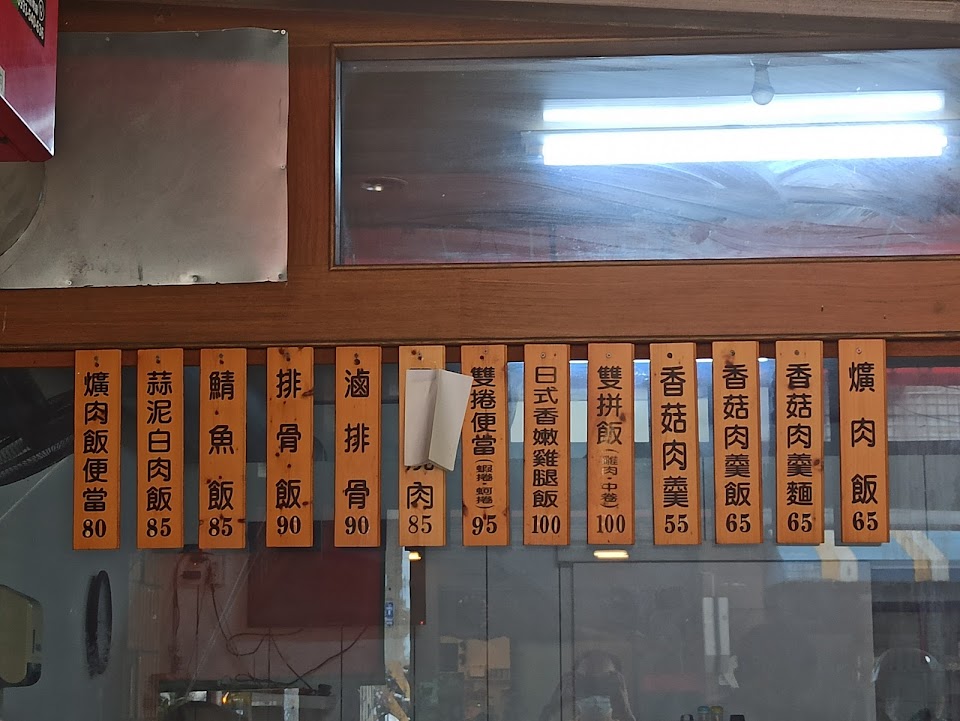 爌肉飯 65
香菇肉羹麵 65
香菇肉羹飯 65
香菇肉羹 55
雙拼飯(雞肉·中卷) 100
日式香嫩雞腿飯 100
雙捲便當(蝦捲·蚵捲) 95
肉 85
滷排骨 90
排骨飯 90
鯖魚飯 85
蒜泥白肉飯 85
爌肉飯便當 80